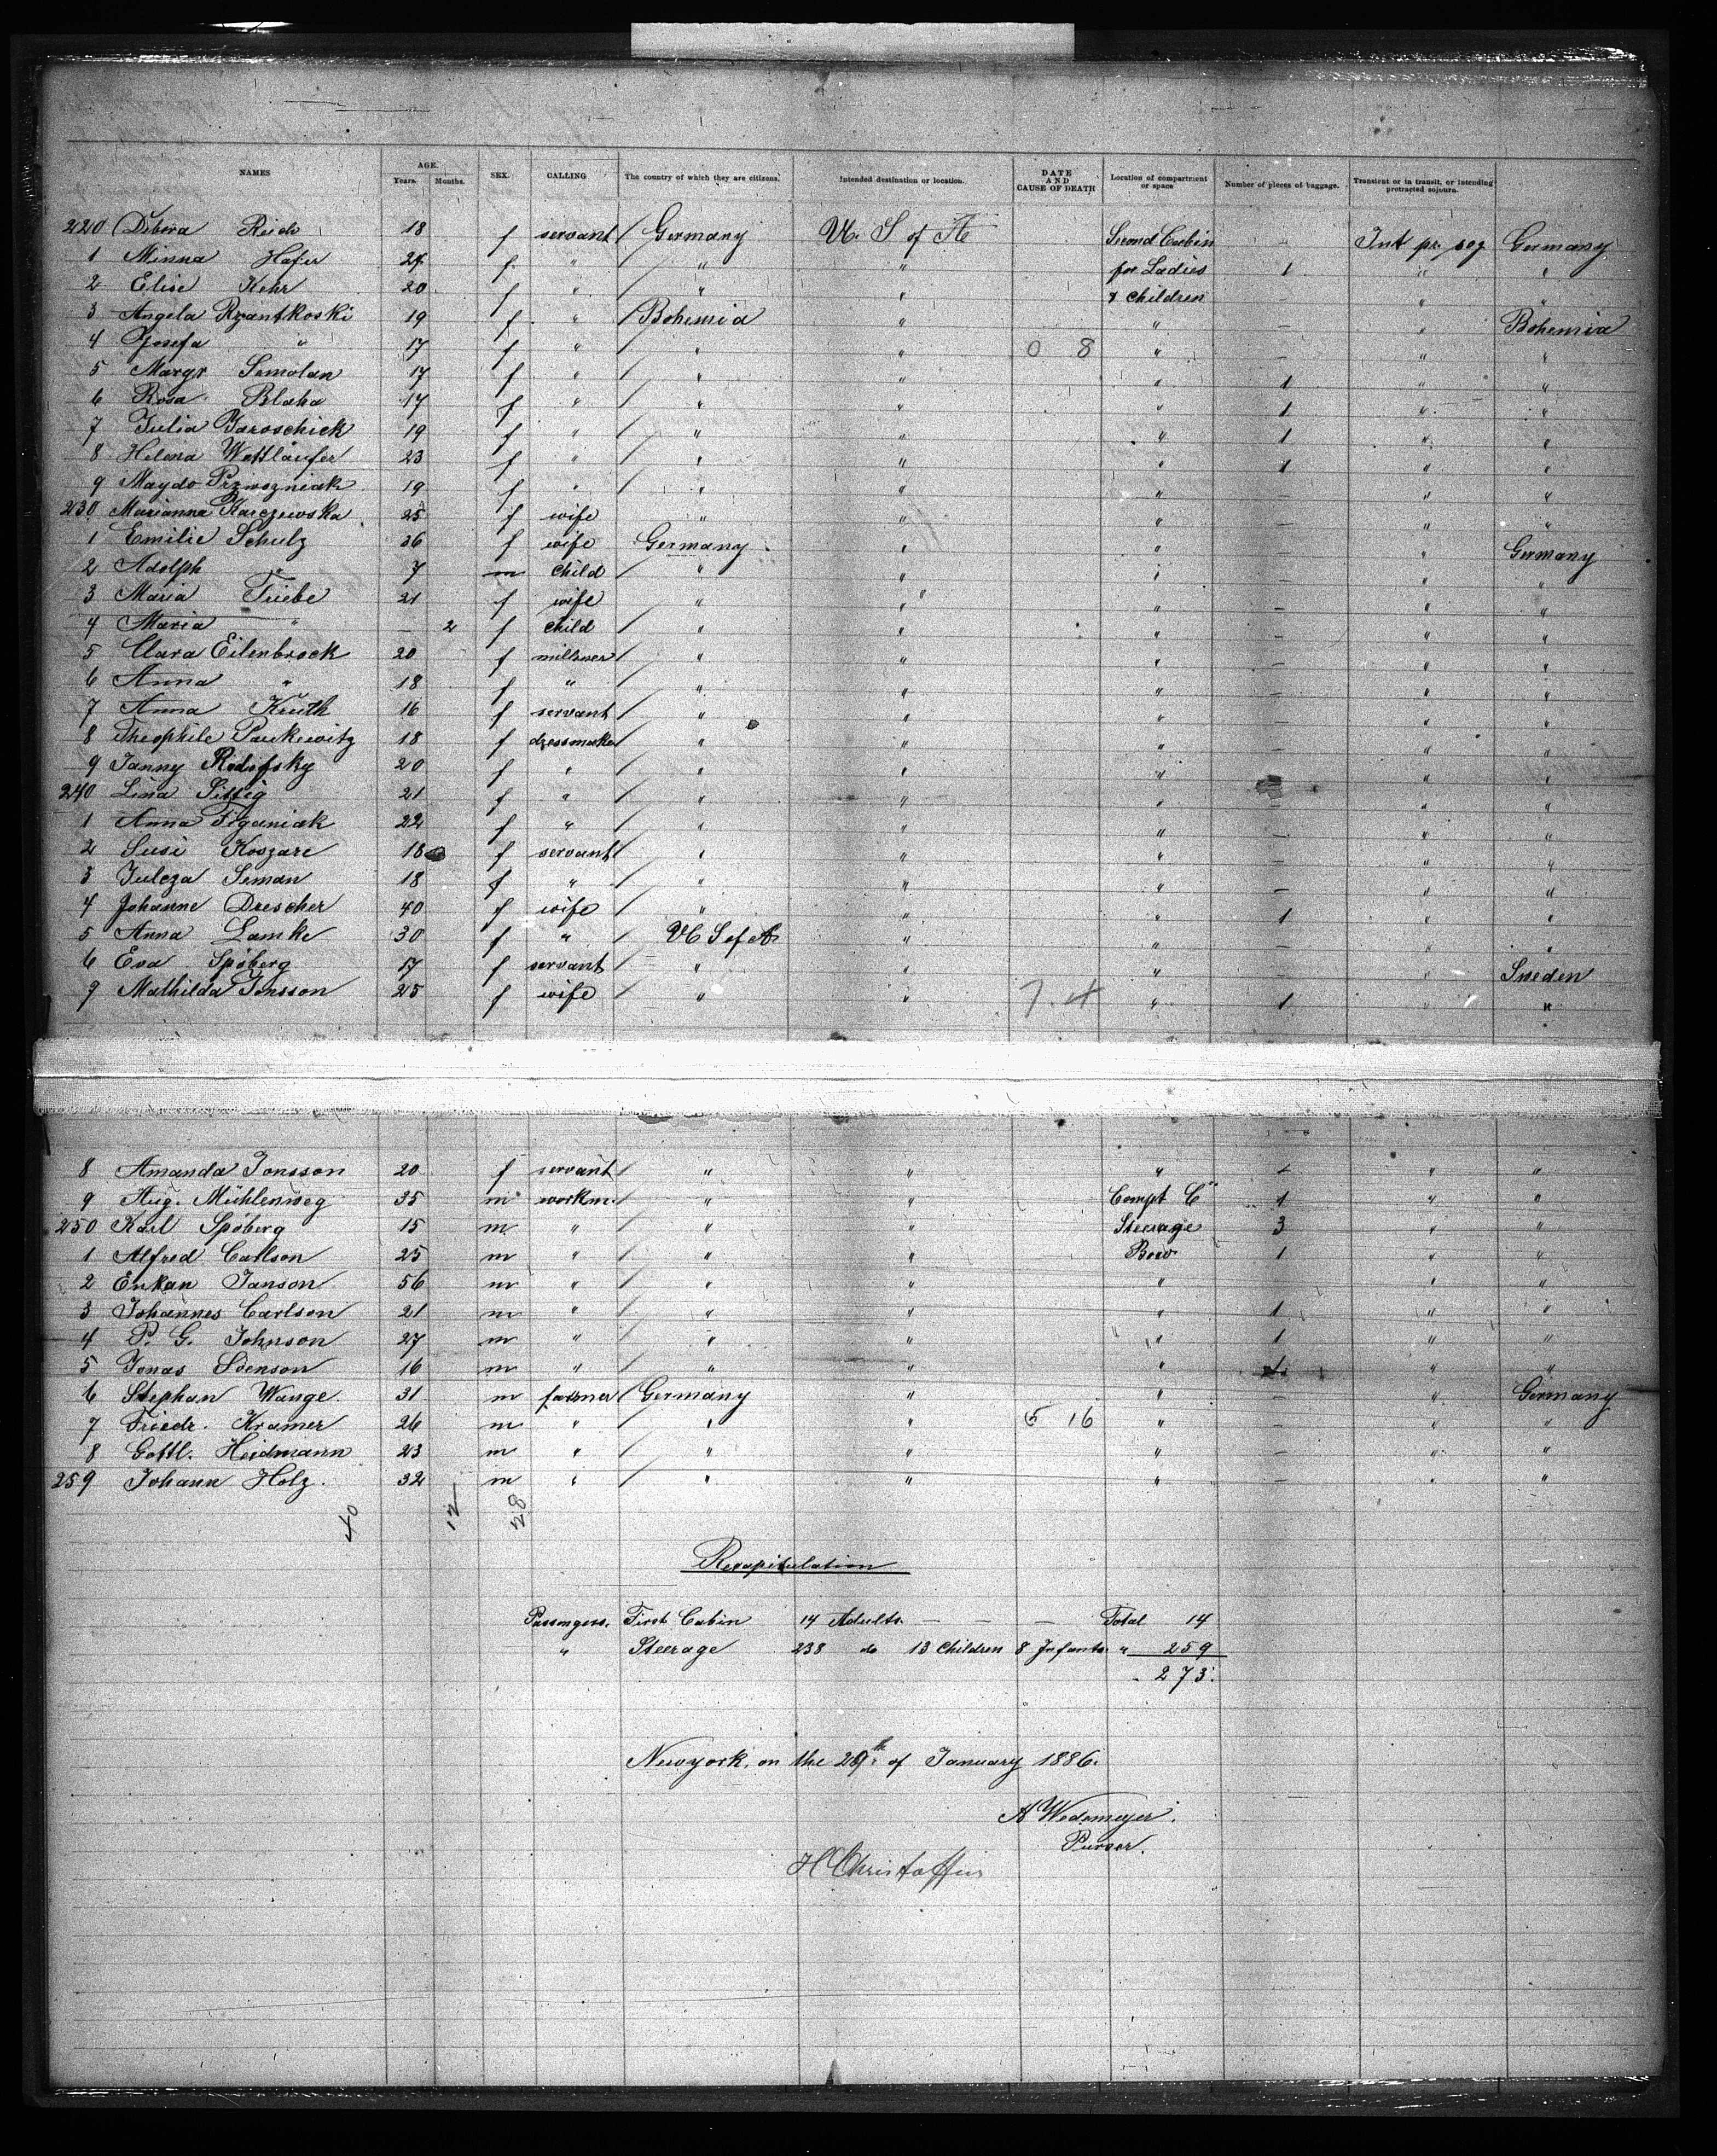 NAMES AGE. Years. Months. SEX. CALLING The country of which they are citizens. Intended destination or location. DATE AND CAUSE OF DEATH Location of compartment or space Number of pieces of baggage. Transient or in transit, or intending protracted sojourn.
220 Debora 18 f servant / Germany U. S of A Second Cabin Int pr. soj Germany
1 Minna Hafer f " " " for Ladies 1 " "
2 Elise Kehr 20 f " " " & Children - " "
3 Angela Rzantkoski 19 f " / Bohemia " " - " Bohemia
4 Josefa " 17 f " / " " 0 8 " - " "
5 Margr Semolan 17 f " / " " " 1 " "
6 Rosa Blaha 17 f " / " " " 1 " "
7 Julia Jaroschick 19 f " / " " " 1 " "
8 Helena Wettlaufer 23 f " / " " " 1 " "
9 Maydo Przwozniak 19 f " / " " " - " "
230 Marianna Karczewska 25 f wife " " " - " "
1 Emilie Schulz 36 f wife Germany " " " Germany
2 Adolph " 7 m Child / " " " - " "
3 Maria Triebe 21 f wife " " " - " "
4 Maria " - 2 f Child / " " " - " "
5 Clara Eilenbrock 20 f milliner / " " " - " "
6 Anna " 18 f " / " " " - " "
7 Anna Kruth 16 f servant / " " " - " "
8 Theophile Paukewitz 18 f dressmaker " " " - " "
9 Janny Rodofsky 20 f " / " " " " "
240 Lina Sittig 21 f " / " " " - " "
1 Anna Tiganiak 22 f " / " " " - " "
2 Susi Koszare 18 f servant / " " " - " "
3 Julcza Seman 18 f " / " " " - " "
4 Johanne Drescher 40 f wife / " " " 1 " "
5 Anna Lamke 30 f " / U S of A " " - " "
6 Eva Spöberg 17 f servant / " " " - " Sweden
7 Mathilda Jonsson 25 f wife / " " 7. 4 " 1 " "
8 Amanda Jonsson 20 f servant / " " " - " "
9 Aug. Mühlenweg 35 m workm. / " " Compt C" 1 " "
250 Karl Spöberg 15 m " / " " Steerage 3 " "
1 Alfred Carlson 25 m " / " " Bow 1 " "
2 Enkan Janson 56 m " / " " " " "
3 Johannes Carlson 21 m " / " " " 1 " "
4 P. G. Johnson 27 m " / " " " 1 " "
5 Jonas Svenson 16 m " / " " " 1 " "
6 Stephan Wange 31 m farmer / Germany " " - " Germany
7 Friedr. Kramer 26 m " / " " 5 16 " - " "
8 Gottl. Heidmann 23 m " / " " " - " "
259 Johann Holz. 32 m " / " " " - " "
40 12 28
Recapitulation
Passengers. First Cabin 14 Adults - - - Total 14
" Steerage 238 do 13 Children 8 Infants " 259
273.
Newyork, on the 29th of January 1886.
A Wedemeyer.
Purser.
H Christoffers